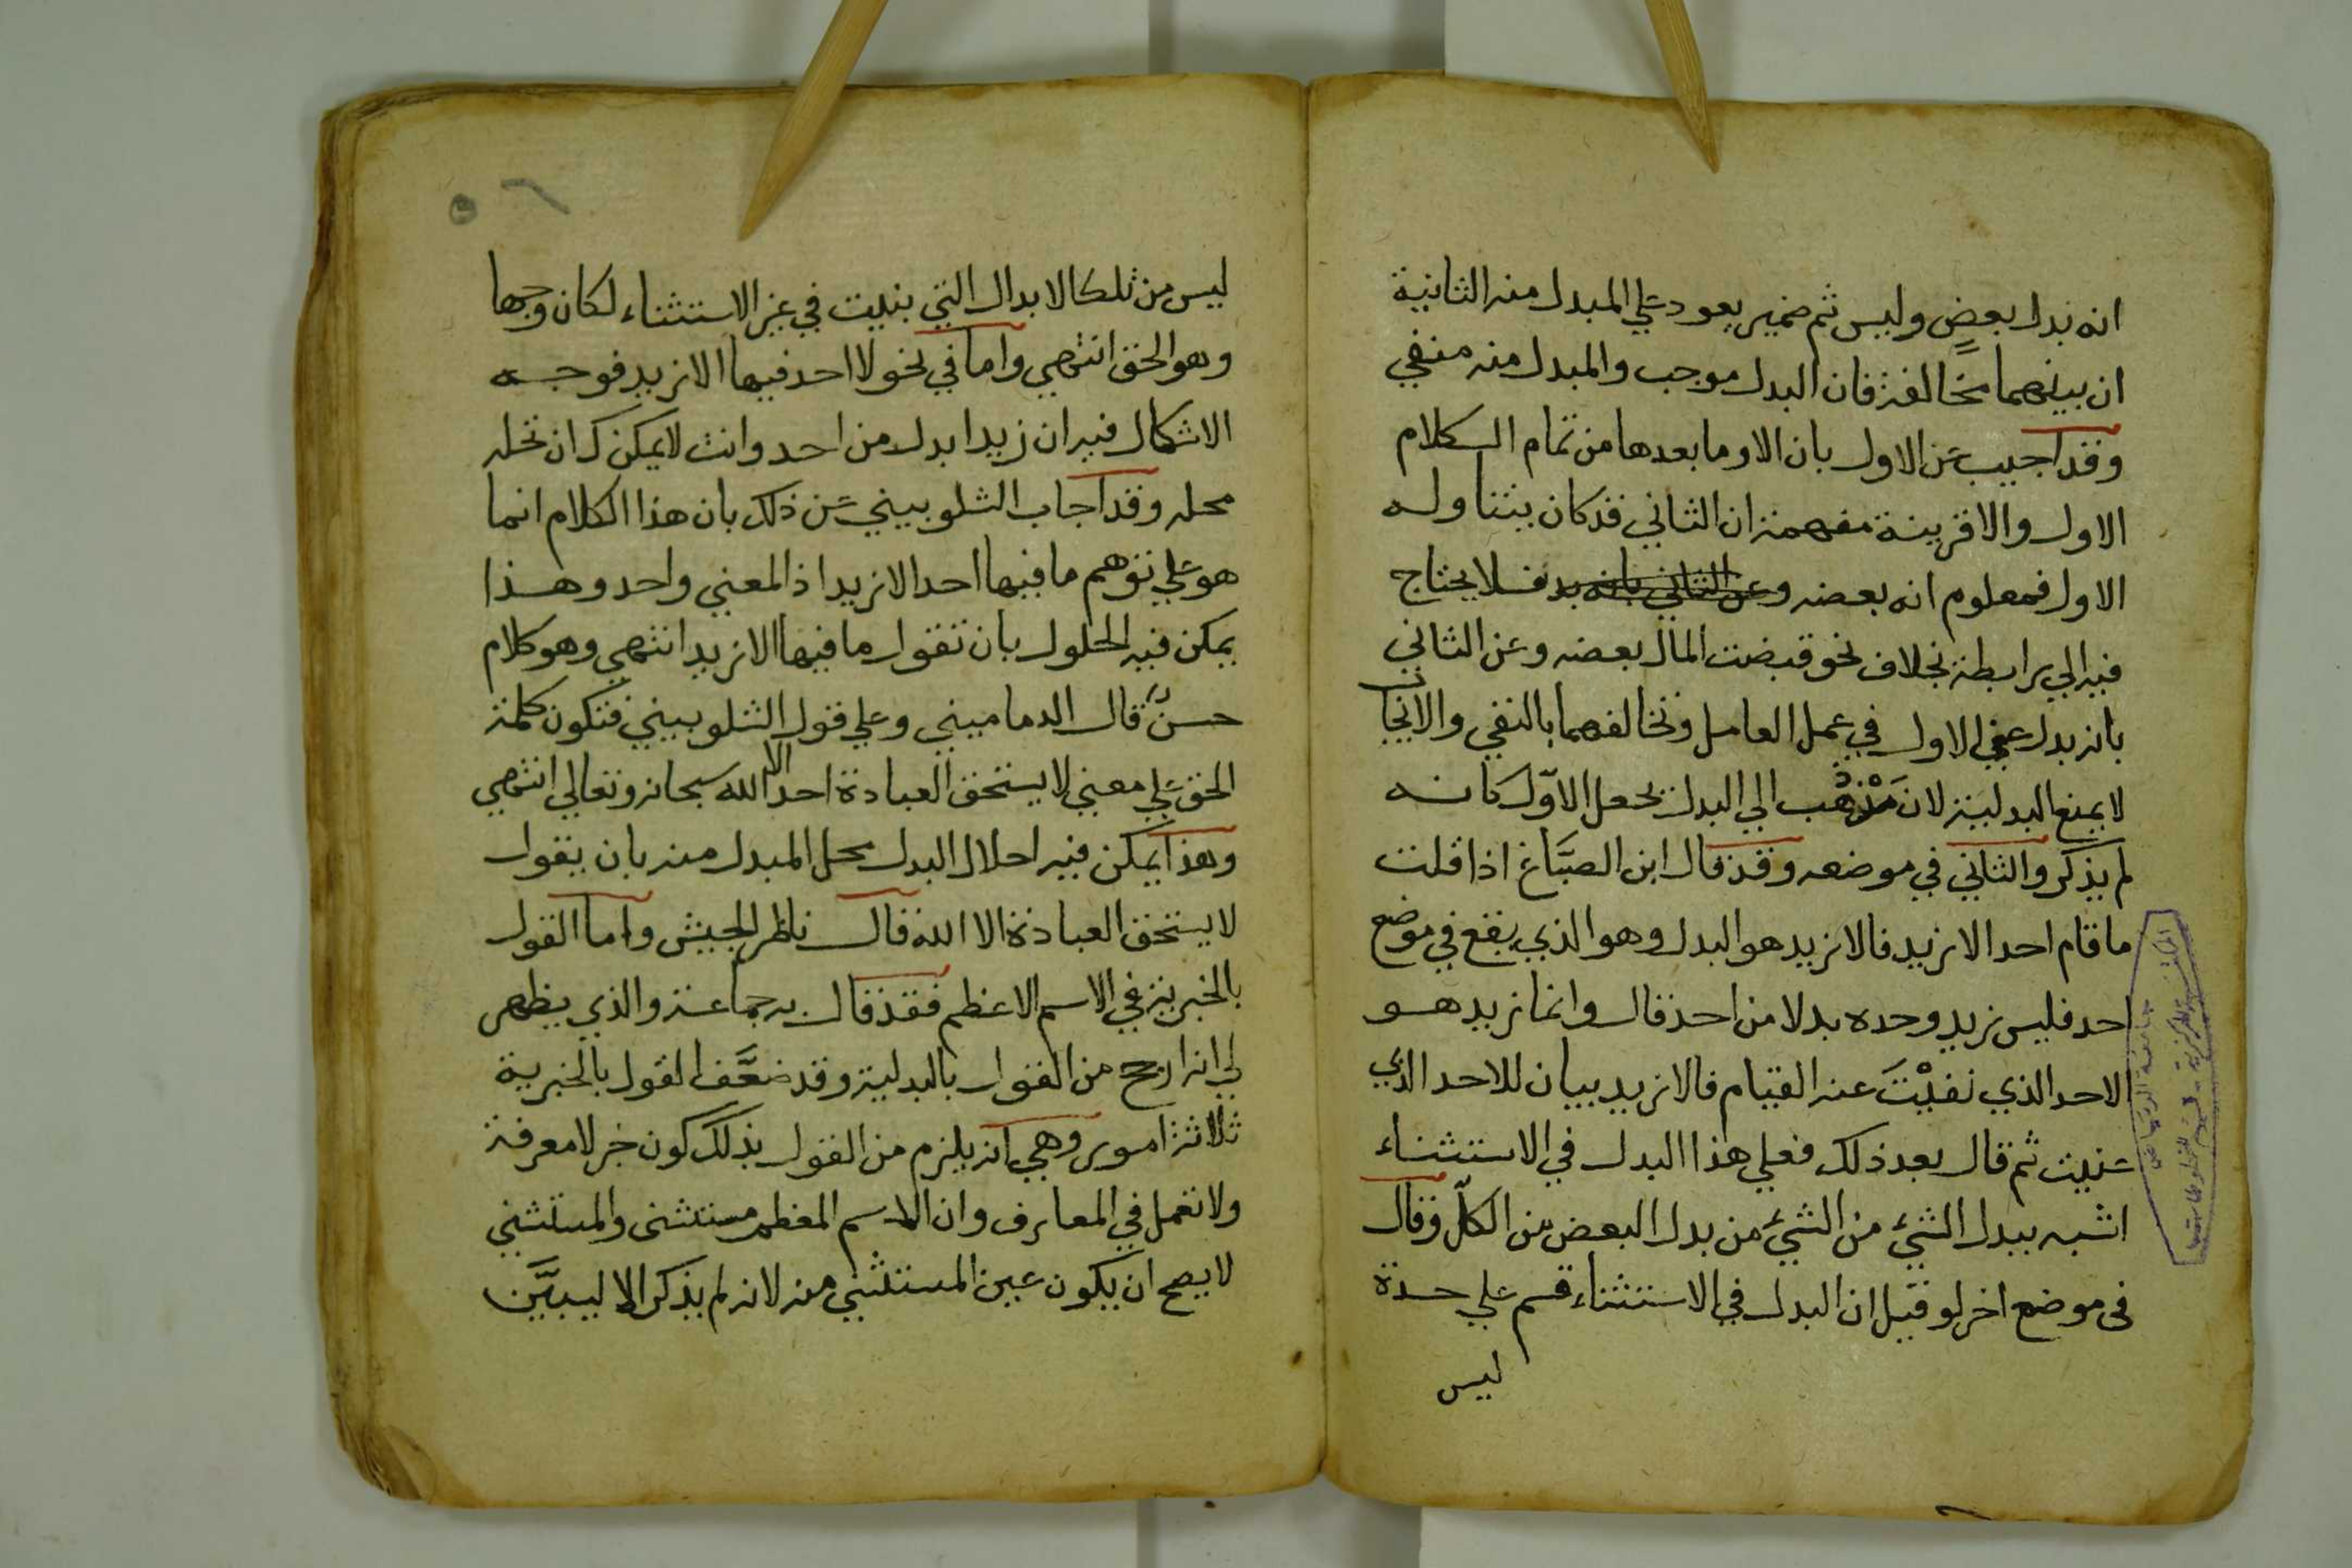 انه بدل بعضٍ وليس ثم ضمير يعود علي المبدل منه الثانية
ان بينهما مخالفةً فان البدل موجب والمبدل منه منفي
وقد اجيب عن الاول بان الا وما بعدها من تمام الكلام
الاول والا قرينة مفهمة ان الثاني قد كان يتناوله
الاول فمعلوم انه بعضه وعن الثاني بانه بد فلا يحتاج
فيه الي رابطة بخلاف نحو قبضت المال بعضه وعن الثاني
بانه بدل عن الاول في عمل العامل وتخالفهما بالنفي والايجاب
لا يمنع البدلية لان مَذْهب الي البدل يجعل الاوّل كانه
لم يذكر والثاني في موضعه وقد قال ابن الصبَّاغ اذا قلت
ما قام احد الا زيد فالا زيد هو البدل وهو الذي يقع في موضع
احد فليس زيد وحده بدلا من احد قال وانما زيد هو
الاحد الذي نفيْتَ عنه القيام فالا زيد بيان للاحد الذي
عنيت ثم قال بعد ذلك فعلي هذا البدل في الاستثناء
اشبه ببدل الشيء من الشيء من بدل البعض من الكلّ وقال
في موضع اخر لو قيل ان البدل في الاستثناء قسم علي حدة
ليس
ليس من تلك الابدال التي بنيت في غير الاستثناء لكان وجها
وهو الحق انتهي واما في نحو لا احد فيها الا زيد فوجه
الاشكال فيه ان زيدا بدل من احد وانت لا يمكنك ان تحله
محله وقد اجاب الشلوبيني عن ذلك بان هذا الكلام انما
هو علي توهم ما فيها احد الا زيد اذ المعني واحد وهذا
يمكن فيه الحلول بان تقول ما فيها الا زيد انتهي وهو كلام
حسنٌ قال الدماميني وعلي قول الشلوبيني فتكون كلمة
الحق علي معني لا يستحق العبادة احد الا الله سبحانه وتعالي انتهي
وهذا يمكن فيه احلال البدل محل المبدل منه بان يقول
لا يستحق العبادة الا الله قال ناظر الجيش واما القول
بالخبرية في الاسم الاعظم فقد قال به جماعة والذي يظهر
لي انه ارجح من القول بالبدلية وقد ضعَّف القول بالخبرية
ثلاثة امور وهي انه يلزم من القول بذلك كون خبر لا معرفة
ولا تعمل في المعارف وان الاسم المعظم مستثنى والمستثني
لا يصح ان يكون عين المستثني منه لانه لم يذكر الا ليبيَّن